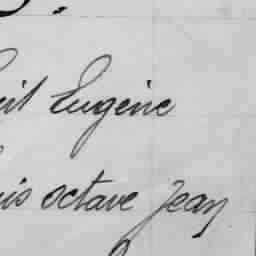 Eugène
octave Jean